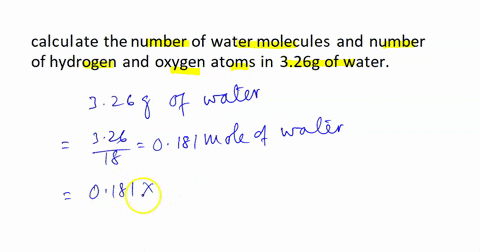 calculate the number of water molecules and number
of hydrogen and oxygen atoms in 3.26g of water.
3.26g of water
= 3.26/18 = 0.181 mole of water
= 0.181 X